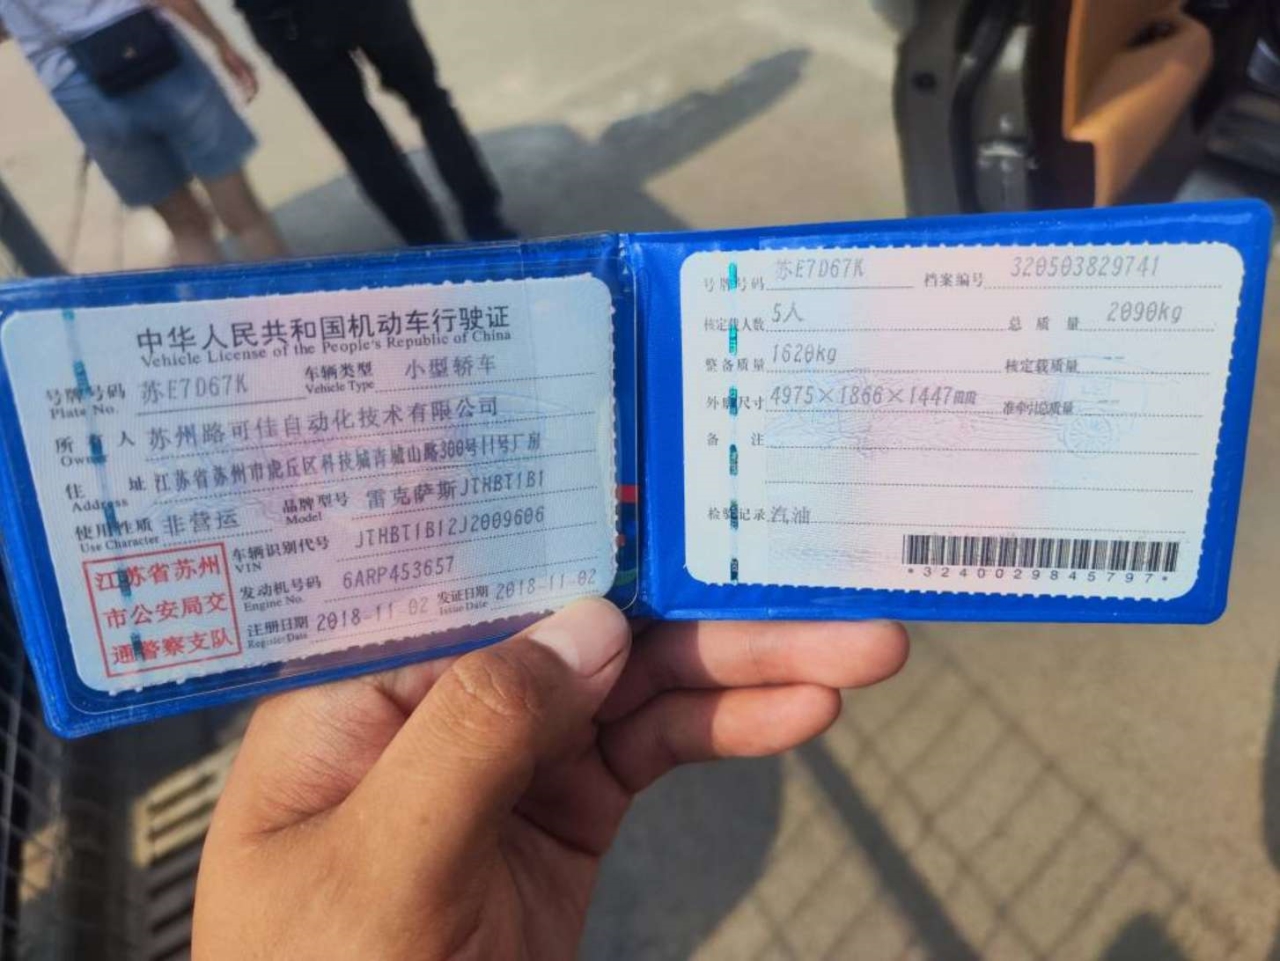 中华人民共和国机动车行驶证
Vehicle License of the People's Republic of China
号牌号码 苏E7D67K 车辆类型 小型轿车
Plate No. Vehicle Type
所有人 苏州路可佳自动化技术有限公司
Owner
住址 江苏省苏州市虎丘区科技城青城山路300号11号厂房
Address
使用性质 非营运 品牌型号 雷克萨斯JTHBT1B1
Use Character Model
江苏省苏州
市公安局交
通警察支队
车辆识别代号 JTHBT1B12J2009606
VIN
发动机号码 6ARP453657
Engine No.
注册日期 2018-11-02 发证日期 2018-11-02
Register Date Issue Date
号牌号码 苏E7D67K 档案编号 320503829741
核定载人数 5人 总质量 2090kg
整备质量 1620kg 核定载质量 --
外廓尺寸 4975×1866×1447mm 准牵引总质量 --
备注
检验记录 汽油
*3240029845797*